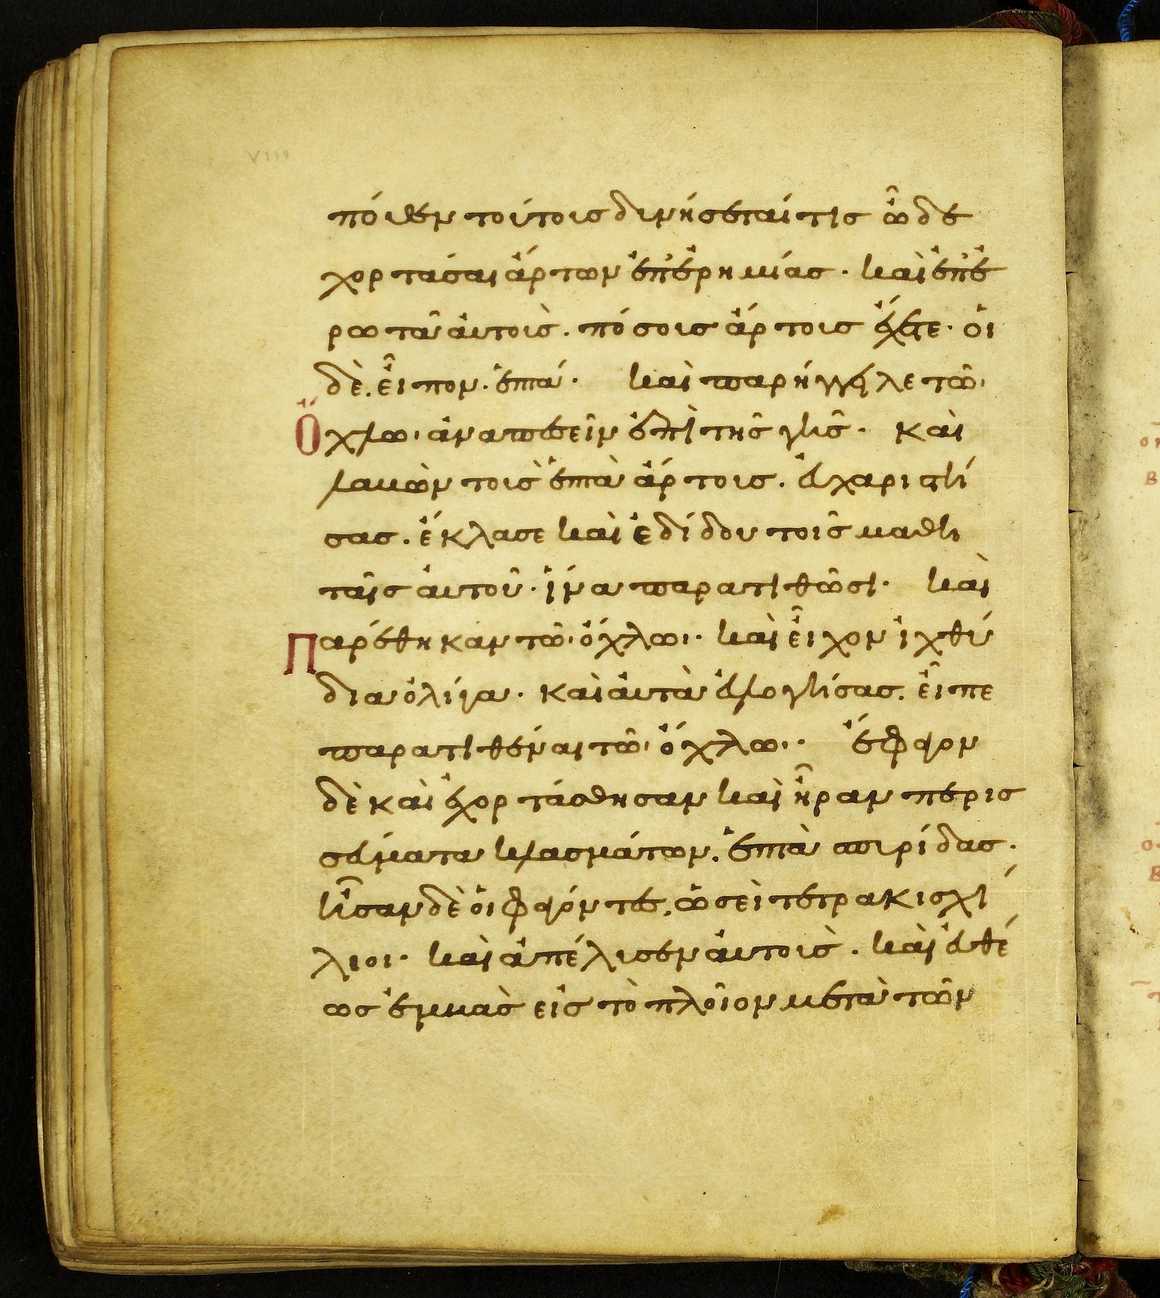 πόθεν τούτοις δινήσεταί τις ὧδε
χορτάσαι ἄρτων ἐπ' ἐρημίας. καὶ ἐπε
ρωτᾶ αὐτοὶς. πόσοις ἄρτοις ἔχετε· οἱ
δὲ. εἶπον. ἑπτά· καὶ παρήγγελε τῶ
ὄχλω· ἀναπεσεῖν ἐπὶ τῆς γῆς· καὶ
λαμὼν τοὶς ἑπτὰ ἄρτοις. εὐχαριστή
σας. ἔκλασε καὶ ἐδίδου τοῖς μαθη
ταῖς αὐτοῦ· ἵνα παρατιθῶσι· καὶ
παρέθηκαν τῶ ὄχλω· καὶ εἶχον ἰχθύ
δια ὀλίγα· καὶ αὐτὰ εὐλογήσας. εἶπε
παρατιθέναι τῶ ὄχλω· ἔφαγον
δὲ καὶ ἐχορτάσθησαν καὶ ἦραν περισ
σεύματα κλασμάτων. ἑπτὰ σπιρίδας.
ἦσαν δὲ οἱ φαγόντες, ὡσεὶ τετρακισχί
λιοι· καὶ ἀπέλισεν αὐτοὶς. καὶ εὐθέ
ως ἐμκὰς εἰς τὸ πλοῖον μετὰ τῶν